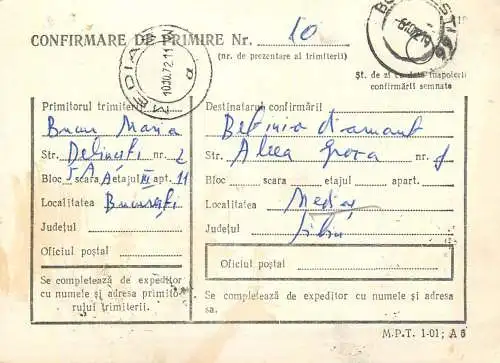 CONFIRMARE DE PRIMIRE Nr. 10
(nr. de prezentare al trimiterii)
MEDIAȘ
10.10.72.11
Șt. de zi cu data înapoierii
confirmării semnate
Primitorul trimiterii
Bucur Maria
Str. nr. 2
Bloc 5A scara A etajul III apt. 11
Localitatea București
Județul
Oficiul poștal
Se completează de expeditor
cu numele și adresa primito-
rului trimiterii.
Destinatarul confirmării
Str. Aleea nr. 1
Bloc scara etajul apart.
Localitatea Mediaș
Județul Sibiu
Oficiul poștal
Se completează de expeditor cu numele și adresa
sa.
M.P.T. 1-01; A 6